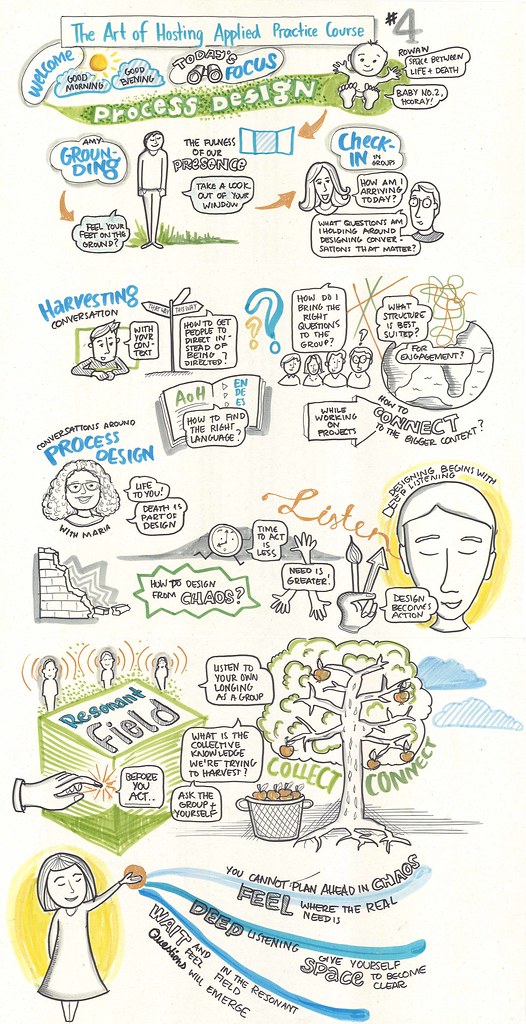 The Art of Hosting Applied Practice Course
#4
WELCOME
GOOD
MORNING
GOOD
EVENING
TODAY'S
FOCUS
PROCESS DESIGN
ROWAN
SPACE BETWEEN
LIFE + DEATH
BABY NO.2,
HOORAY!
AMY
GROUN-
DING
FEEL YOUR
FEET ON THE
GROUND?
THE FULNESS
OF OUR
PRESENCE
TAKE A LOOK
OUT OF YOUR
WINDOW
CHECK-
IN IN
GROUPS
HOW AM I
ARRIVING
TODAY?
WHAT QUESTIONS AM
I HOLDING AROUND
DESIGNING CONVER-
SATIONS THAT MATTER?
HARVESTING
CONVERSATION
WITH
YOUR
CON-
TEXT
THAT WAY
THIS WAY
HOW TO GET
PEOPLE TO
DIRECT IN-
STEAD OF
BEING
DIRECTED?
??
HOW DO I
BRING THE
RIGHT
QUESTIONS
TO THE
GROUP?
?
WHAT
STRUCTURE
IS BEST
SUITED?
FOR
ENGAGEMENT?
AOH
EN
DE
ES
HOW TO FIND
THE RIGHT
LANGUAGE?
WHILE
WORKING ON
PROJECTS
HOW TO
CONNECT
TO THE BIGGER CONTEXT?
CONVERSATIONS AROUND
PROCESS
DESIGN
LIFE
TO YOU!
DEATH IS
PART OF
DESIGN
WITH MARIA
DESIGNING BEGINS WITH
DEEP LISTENING
Listen
TIME TO
ACT IS
LESS
NEED IS
GREATER!
HOW TO DESIGN
FROM CHAOS?
DESIGN
BECOMES
ACTION
Resonant
Field
LISTEN TO
YOUR OWN
LONGING
AS A GROUP
WHAT IS THE
COLLECTIVE
KNOWLEDGE
WE'RE TRYING
TO HARVEST?
BEFORE
YOU
ACT..
ASK THE
GROUP +
YOURSELF
COLLECT
CONNECT
YOU CANNOT PLAN AHEAD IN CHAOS
FEEL WHERE THE REAL
NEED IS
DEEP LISTENING
GIVE YOURSELF
SPACE TO BECOME
CLEAR
WAIT AND
FEEL
IN THE RESONANT
FIELD
Questions WILL EMERGE